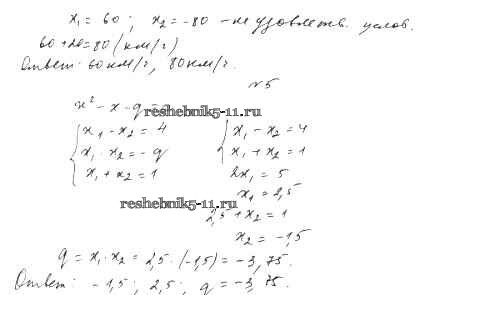 x₁ = 60; x₂ = -80 - не удовлетв. услов.
60 + 20 = 80 (км/г)
Ответ: 60 км/г, 80 км/г.
№5
x² - x - q
reshebnik5-11.ru
x₁ - x₂ = 4
x₁ · x₂ = -q
x₁ + x₂ = 1
x₁ - x₂ = 4
x₁ + x₂ = 1
2x₁ = 5
x₁ = 2,5
reshebnik5-11.ru
2,5 + x₂ = 1
x₂ = -1,5
q = x₁ · x₂ = 2,5 · (-1,5) = -3,75.
Ответ: -1,5; 2,5; q = -3,75.